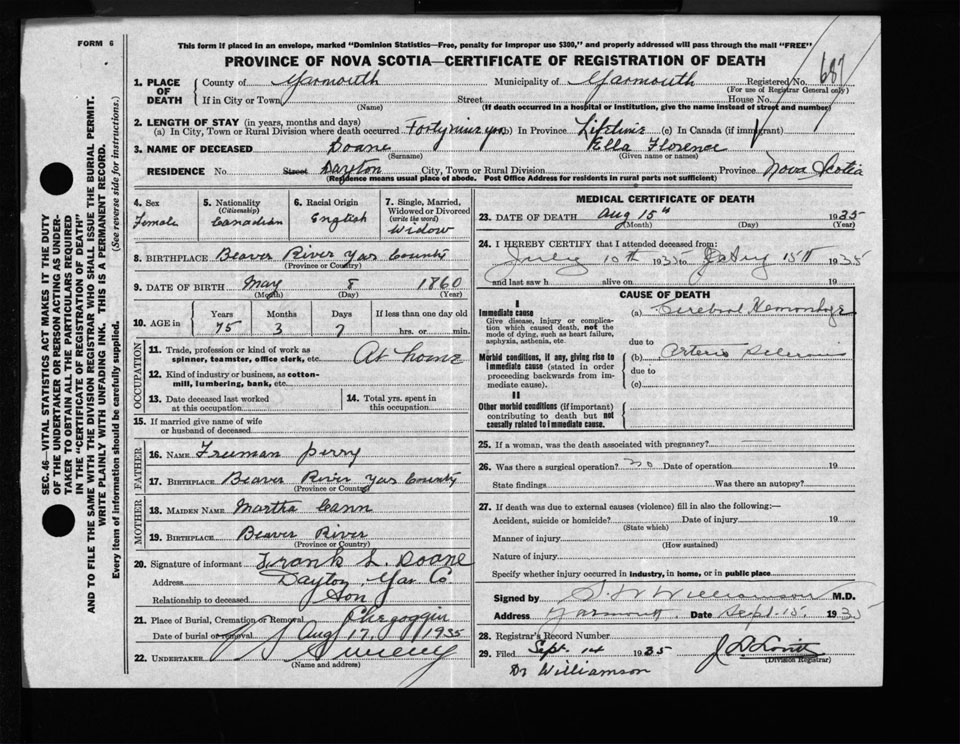 FORM 6
This form if placed in an envelope, marked "Dominion Statistics—Free, penalty for improper use $300," and properly addressed will pass through the mail "FREE"
PROVINCE OF NOVA SCOTIA—CERTIFICATE OF REGISTRATION OF DEATH
687
SEC. 46—VITAL STATISTICS ACT MAKES IT THE DUTY
OF THE UNDERTAKER OR PERSON ACTING AS UNDER-
TAKER TO OBTAIN ALL THE PARTICULARS REQUIRED
IN THE "CERTIFICATE OF REGISTRATION OF DEATH"
AND TO FILE THE SAME WITH THE DIVISION REGISTRAR WHO SHALL ISSUE THE BURIAL PERMIT.
WRITE PLAINLY WITH UNFADING INK. THIS IS A PERMANENT RECORD.
Every item of information should be carefully supplied. (See reverse side for instructions.)
1. PLACE OF DEATH County of Yarmouth Municipality of Yarmouth Registered No.
(For use of Registrar General only)
If in City or Town Street House No.
(Name) (If death occurred in a hospital or institution, give the name instead of street and number)
2. LENGTH OF STAY (in years, months and days)
(a) In City, Town or Rural Division where death occurred Forty nine yrs (b) In Province Lifetime (c) In Canada (if immigrant)
3. NAME OF DECEASED Doane Ella Florence
(Surname) (Given name or names)
RESIDENCE No. Street Dayton City, Town or Rural Division Province Nova Scotia
(Residence means usual place of abode. Post Office Address for residents in rural parts not sufficient)
4. Sex Female
5. Nationality (Citizenship) Canadian
6. Racial Origin English
7. Single, Married, Widowed or Divorced (write the word) Widow
8. BIRTHPLACE Beaver River Yar County
(Province or Country)
9. DATE OF BIRTH May 8 1860
(Month) (Day) (Year)
10. AGE in Years Months Days If less than one day old
75 3 7 hrs. or min.
OCCUPATION
11. Trade, profession or kind of work as spinner, teamster, office clerk, etc. At home
12. Kind of industry or business, as cotton-mill, lumbering, bank, etc.
13. Date deceased last worked at this occupation
14. Total yrs. spent in this occupation
15. If married give name of wife or husband of deceased
FATHER
16. NAME Freeman Perry
17. BIRTHPLACE Beaver River Yar County
(Province or Country)
MOTHER
18. MAIDEN NAME Martha Cann
19. BIRTHPLACE Beaver River
(Province or Country)
20. Signature of informant Frank L. Doane
Address Dayton, Yar. Co.
Relationship to deceased Son
21. Place of Burial, Cremation or Removal Chegoggin
Date of burial or removal Aug 17, 1935
22. UNDERTAKER Sweeny
(Name and address)
MEDICAL CERTIFICATE OF DEATH
23. DATE OF DEATH Aug 15th 1935
(Month) (Day) (Year)
24. I HEREBY CERTIFY that I attended deceased from:
July 10th 1935 to Aug 15th 1935
and last saw h alive on 19
CAUSE OF DEATH
I
Immediate cause (a) Cerebral Hemorrhage
Give disease, injury or complication which caused death, not the mode of dying, such as heart failure, asphyxia, asthenia, etc.
due to
Morbid conditions, if any, giving rise to immediate cause (stated in order proceeding backwards from immediate cause). (b) Arterio Sclerosis
due to
(c)
II
Other morbid conditions (if important) contributing to death but not causally related to immediate cause.
25. If a woman, was the death associated with pregnancy?
26. Was there a surgical operation? no Date of operation 19
State findings Was there an autopsy?
27. If death was due to external causes (violence) fill in also the following:—
Accident, suicide or homicide? Date of injury 19
(State which)
Manner of injury
(How sustained)
Nature of injury
Specify whether injury occurred in industry, in home, or in public place
Signed by S. W. Williamson M.D.
Address Yarmouth. Date Sept. 15. 1935
28. Registrar's Record Number
29. Filed Sept. 14 1935
(Division Registrar)
Dr Williamson